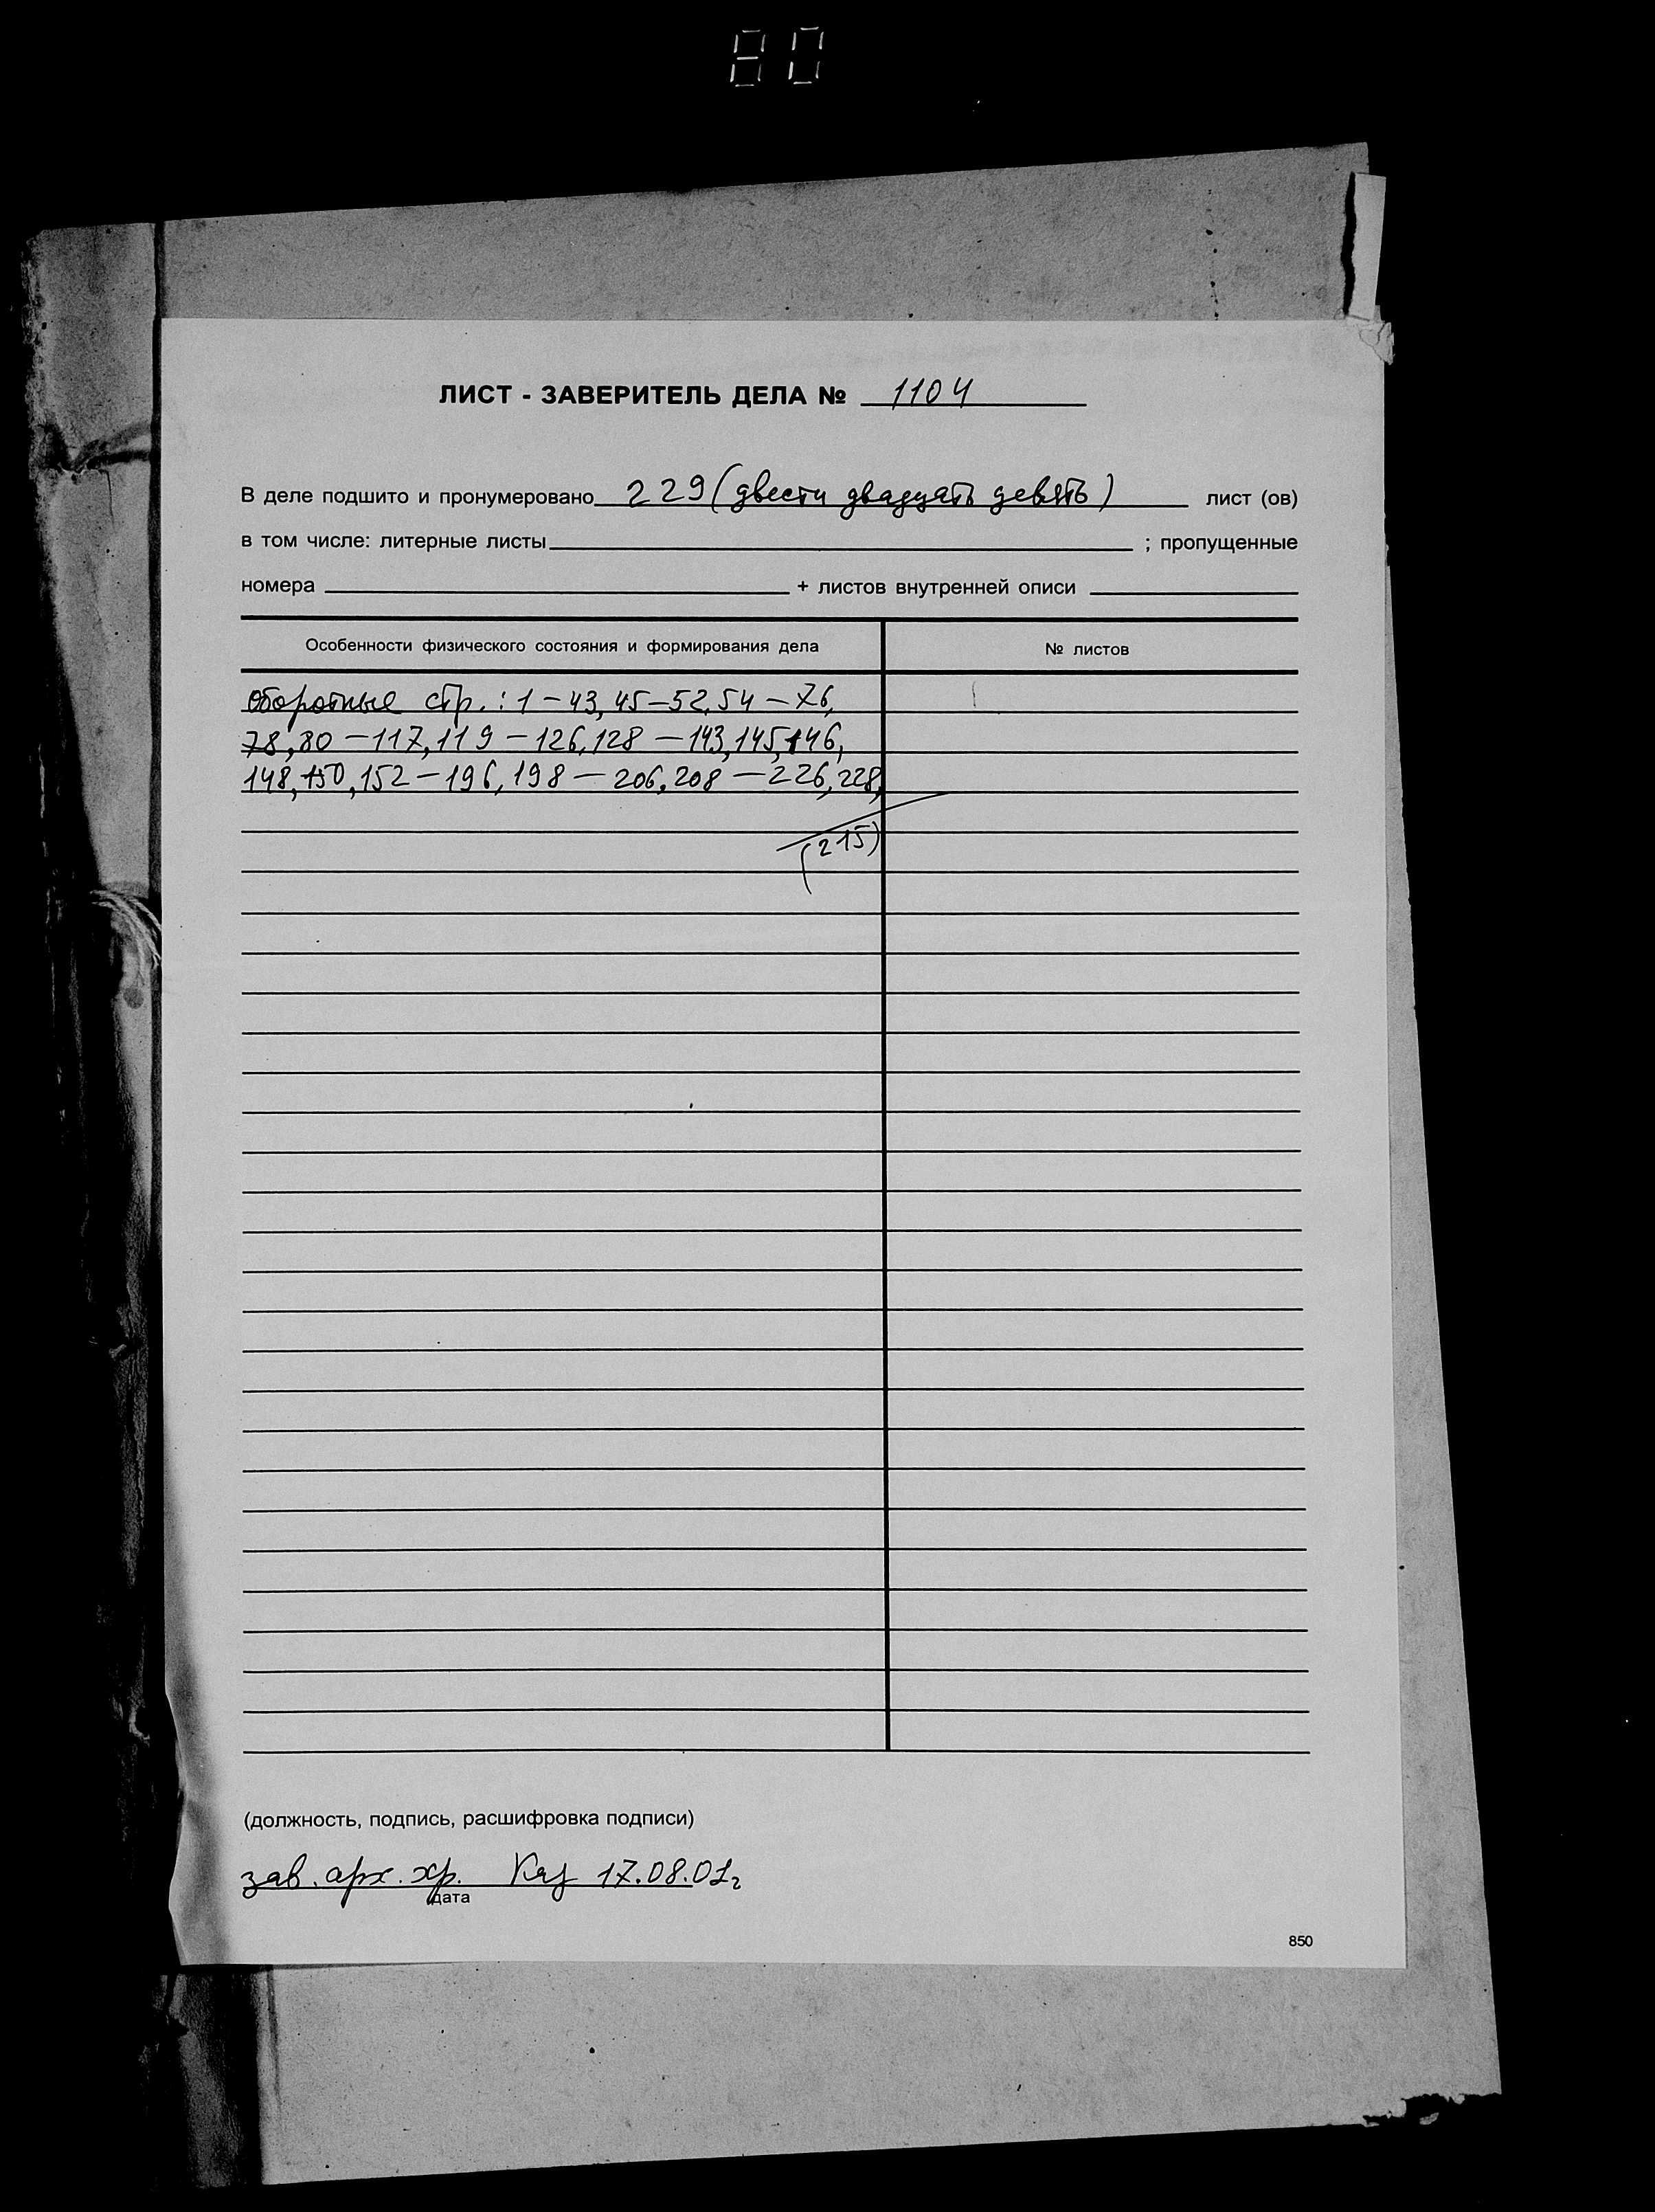 80
ЛИСТ - ЗАВЕРИТЕЛЬ ДЕЛА № 1104
В деле подшито и пронумеровано 229 (двести двадцать девять) лист (ов)
в том числе: литерные листы ; пропущенные
номера + листов внутренней описи
Особенности физического состояния и формирования дела № листов
оборотные стр.: 1 – 43, 45 – 52, 54 – 76,
78, 80 – 117, 119 – 126, 128 – 143, 145, 146,
148, 150, 152 – 196, 198 – 206, 208 – 226, 228,
(215)
(должность, подпись, расшифровка подписи)
зав. арх. хр. 17.08.01г
дата
850